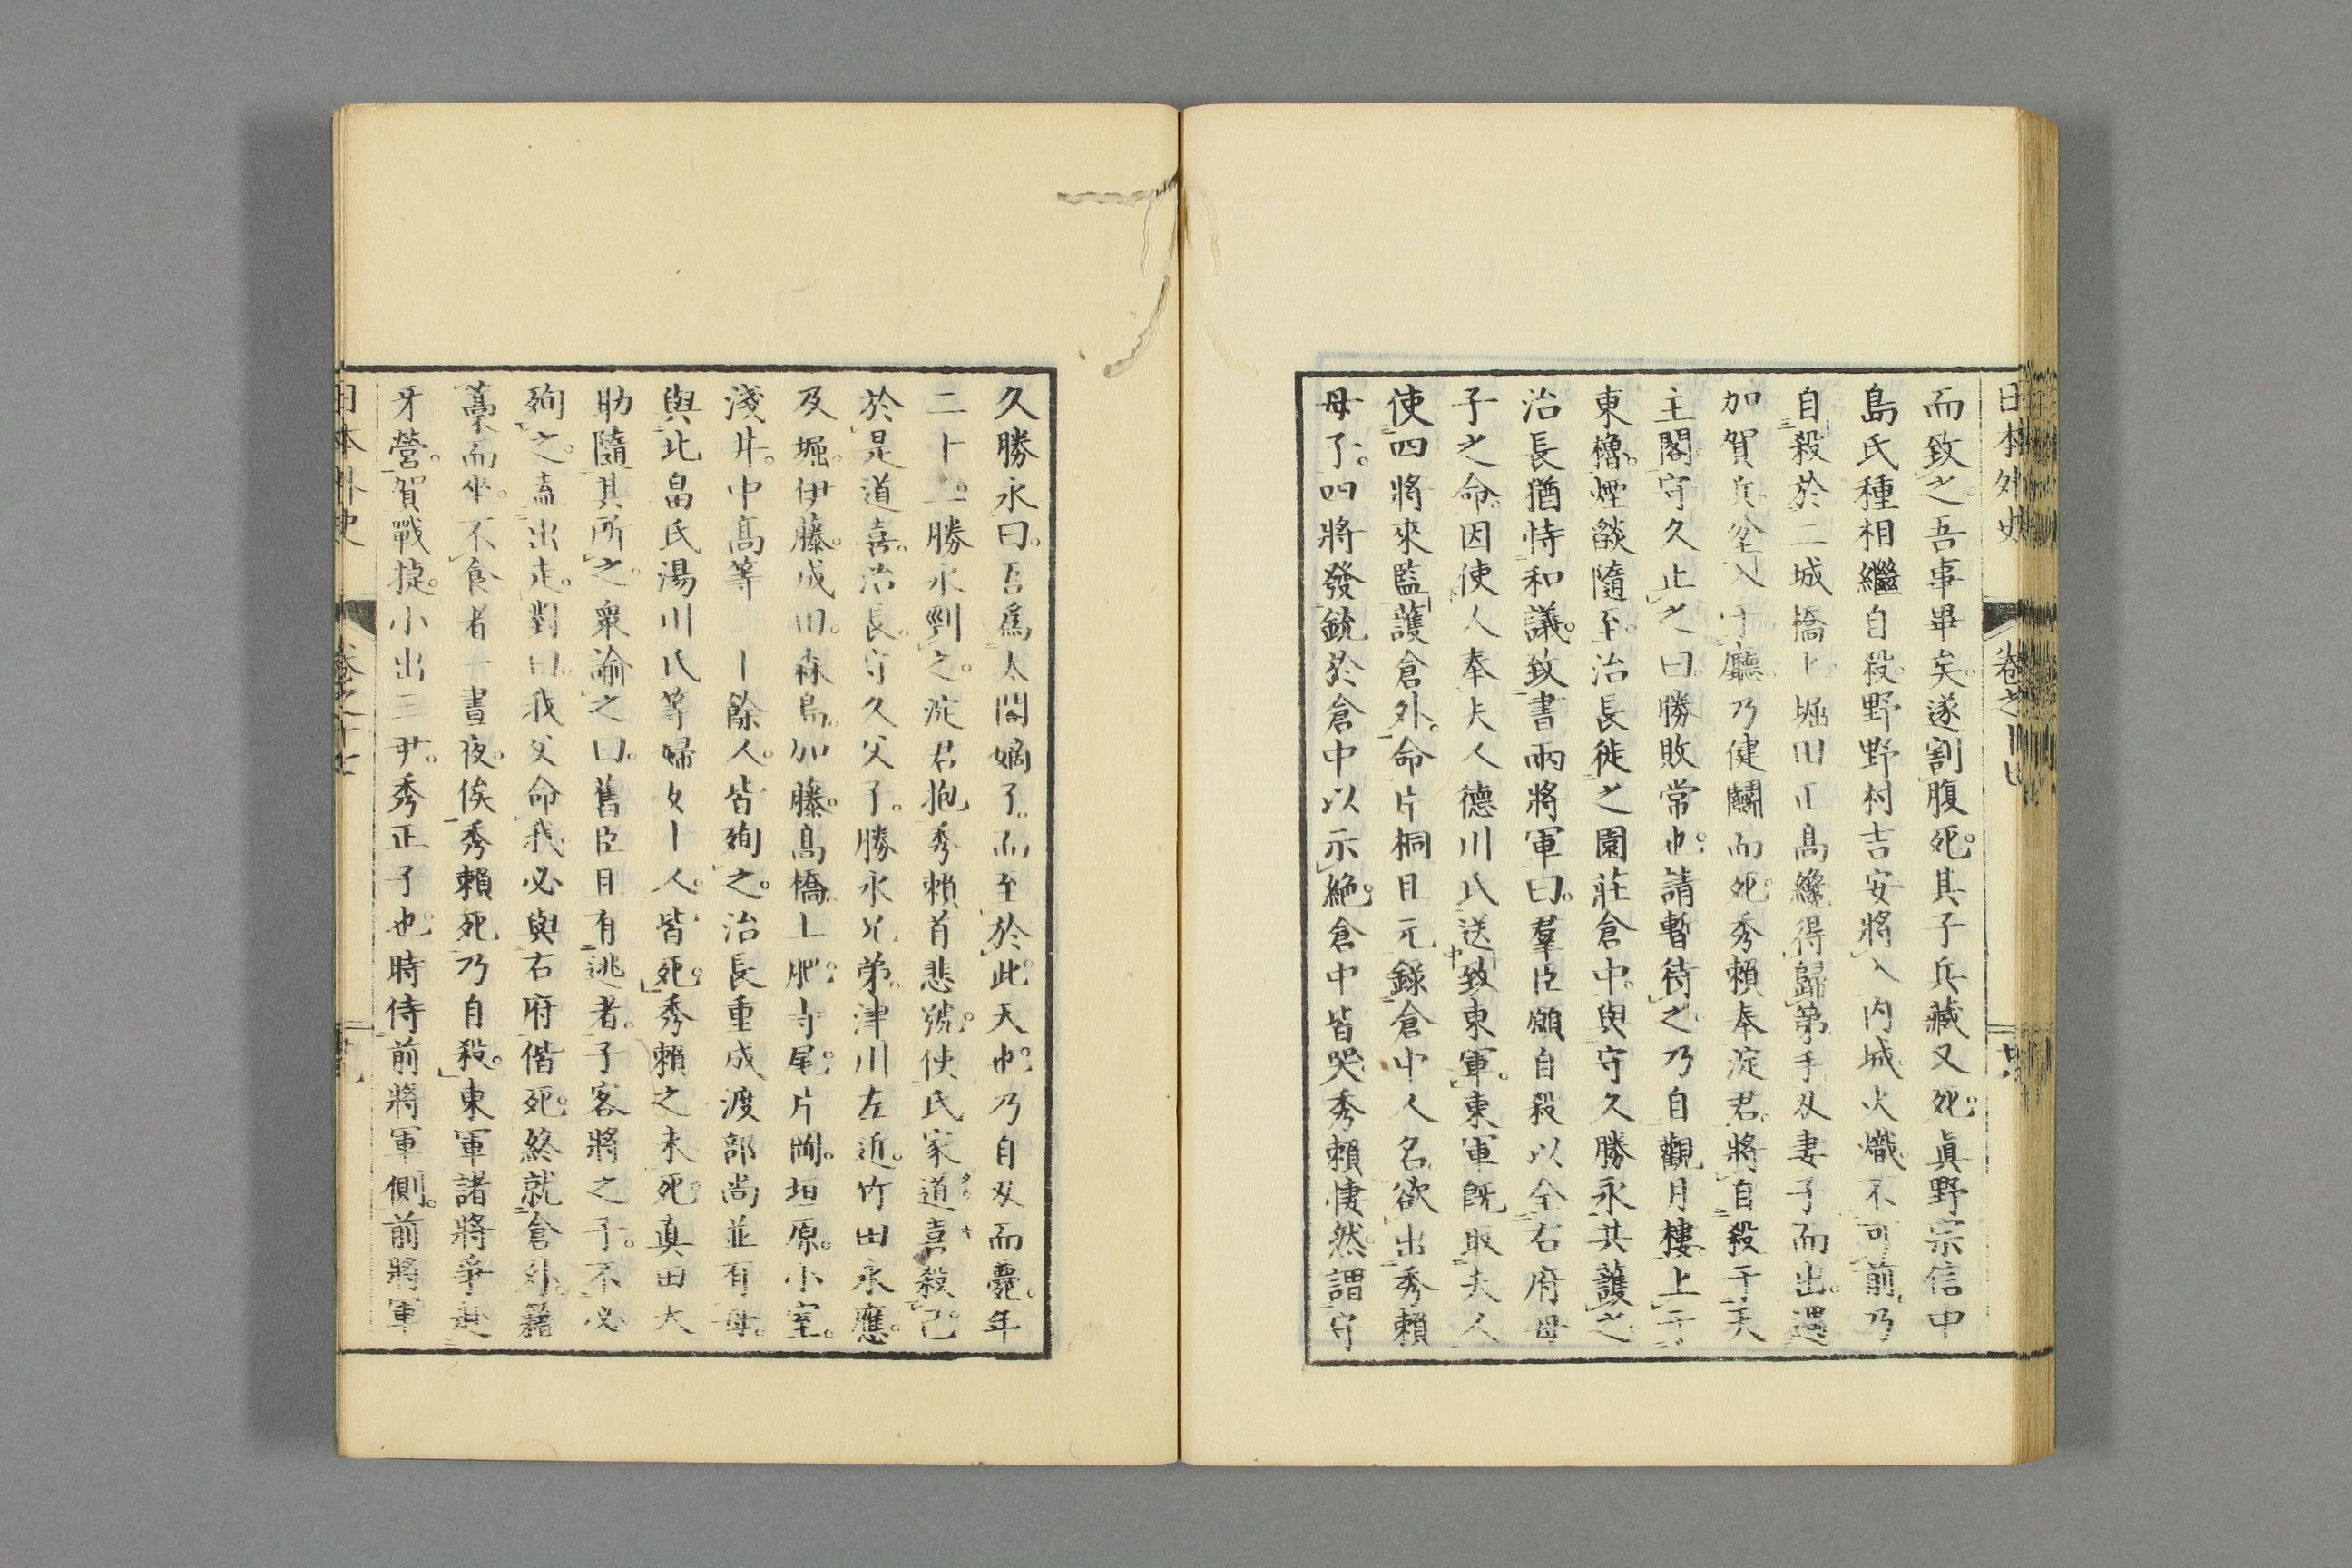 日本外史 卷之十七
而致之。吾事畢矣。遂割腹死。其子兵藏又死。眞野宗信中
島氏種相繼自殺。野野村吉安將入内城火熾。不可前。乃
自殺於二城橋上。堀田正高纔得歸第。手刃妻子而出。遇
加賀兵坌入于廳。乃健鬭而死。秀賴奉淀君。將自殺于天
主閣。守久止之曰。勝敗常也。請暫待之。乃自觀月樓。上于
東櫓。煙燄隨至。治長徙之園莊倉中。與守久勝永共護之。
治長猶恃和議。致書兩將軍曰。羣臣願自殺以全右府母
子之命。因使人奉夫人德川氏送致東軍。東軍既取夫人
使四將來監護倉外。命片桐且元錄倉中人名。欲出秀賴
母子。四將發銃於倉中以示絶。倉中皆哭。秀賴悽然。謂守
久勝永曰。吾爲太閤嫡子。而至於此。天也。乃自刄而薨。年
二十三。勝永剄之。淀君抱秀賴首悲號。使氏家道喜殺己。
於是道喜。治長。守久父子。勝永兄弟。津川左近。竹田永應。
及堀。伊藤。成田。森島。加藤。高橋。土肥。寺尾。片岡。垣原。小室。
淺井。中高等 十餘人。皆殉之。治長重成渡部尚並有母。
與北畠氏湯川氏等婦女十人。皆死。秀賴之未死。眞田大
助隨其所之。衆諭之曰。舊臣且有逃者。子客將之子。不必
殉之。盍出走。對曰。我父命我必與右府偕死。終就倉外。藉
藁而坐。不食者一晝夜。俟秀賴死乃自殺。東軍諸將爭赴
牙營。賀戰捷。小出三尹。秀正子也。時侍前將軍側。前將軍
日本外史 卷之十七